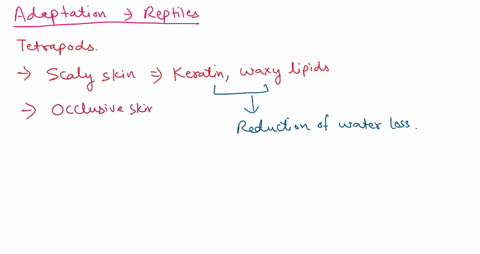 Adaptation → Reptiles
Tetrapods.
→ Scaly skin ⇒ Keratin, waxy lipids
→ Occlusive skin
Reduction of water loss.